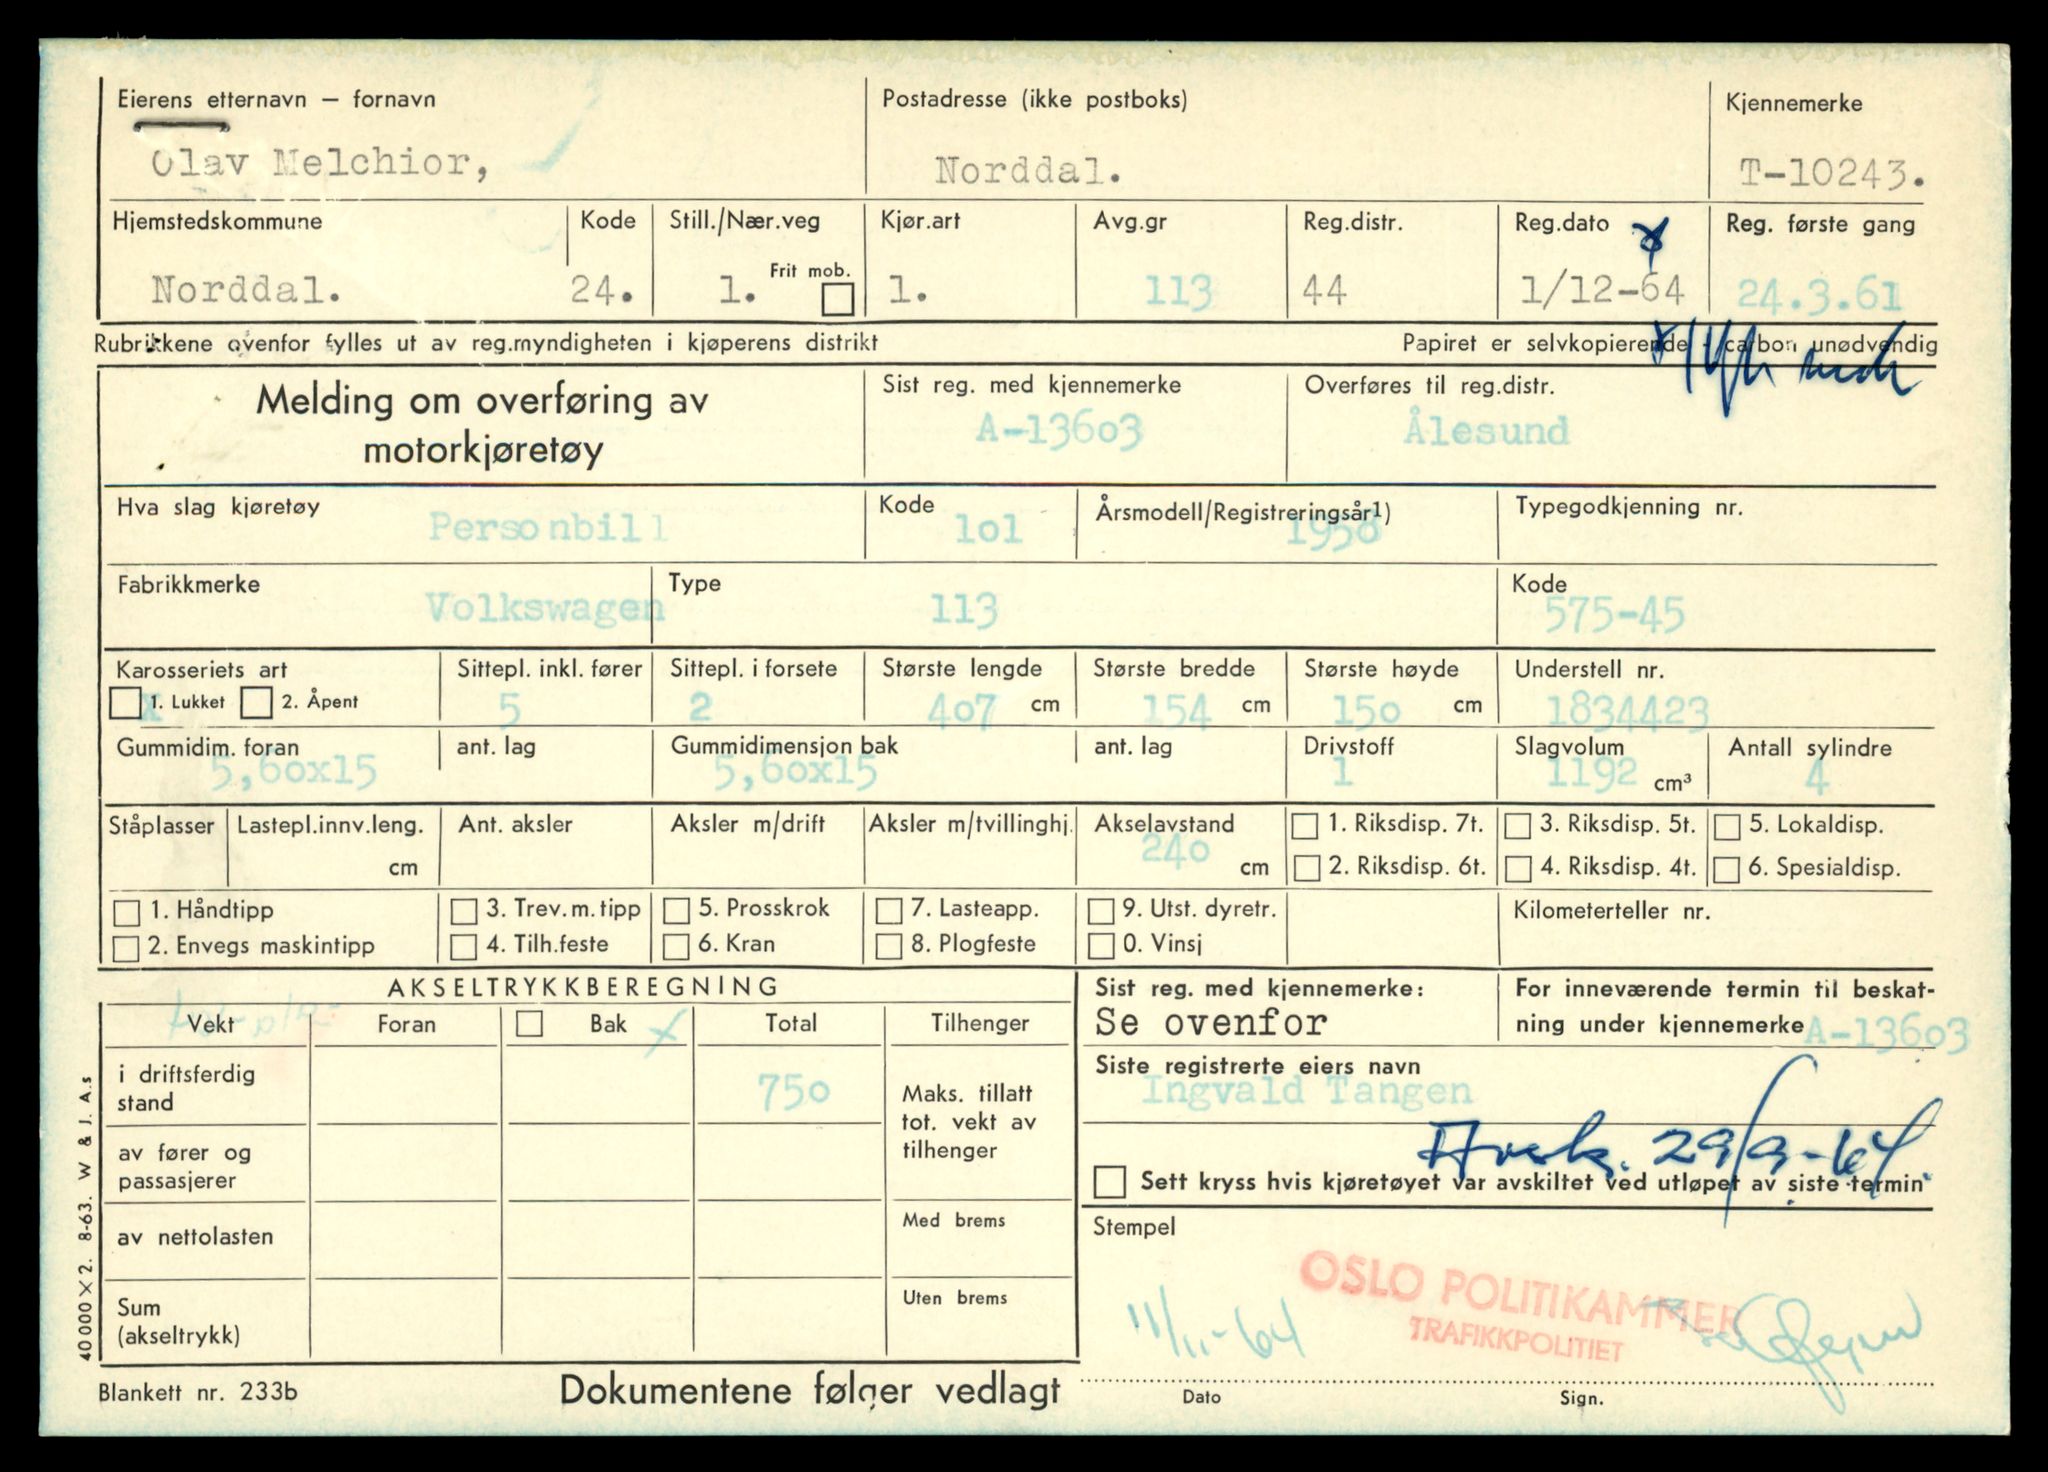 Eierens etternavn — fornavn
Postadresse (ikke postboks)
Kjennemerke
Olav Melchior,
Norddal.
T-10243.
Hjemstedskommune
Kode
Still./Nær.veg
Kjør.art
Avg.gr
Reg.distr.
Reg.dato
Reg. første gang
Norddal.
24.
1.
Frit mob.
1.
113
44
1/12-64
24.3.61
Rubrikkene ovenfor fylles ut av reg.myndigheten i kjøperens distrikt
Papiret er selvkopierende - carbon unødvendig
Melding om overføring av
motorkjøretøy
Sist reg. med kjennemerke
A-13603
Overføres til reg.distr.
Ålesund
Hva slag kjøretøy
Personbill
Kode
101
Årsmodell/Registreringsår1)
1958
Typegodkjenning nr.
Fabrikkmerke
Volkswagen
Type
113
Kode
575-45
Karosseriets art
Sittepl. inkl. fører
Sittepl. i forsete
Største lengde
Største bredde
Største høyde
Understell nr.
x 1. Lukket
2. Åpent
5
2
407 cm
154 cm
150 cm
1834423
Gummidim. foran
ant. lag
Gummidimensjon bak
ant. lag
Drivstoff
Slagvolum
Antall sylindre
5,60x15
5,60x15
1
1192 cm³
4
Ståplasser
Lastepl.innv.leng.
cm
Ant. aksler
Aksler m/drift
Aksler m/tvillinghj.
Akselavstand
240 cm
1. Riksdisp. 7t.
3. Riksdisp. 5t.
5. Lokaldisp.
2. Riksdisp. 6t.
4. Riksdisp. 4t.
6. Spesialdisp.
1. Håndtipp
3. Trev. m. tipp
5. Prosskrok
7. Lasteapp.
9. Utst. dyretr.
Kilometerteller nr.
2. Envegs maskintipp
4. Tilh.feste
6. Kran
8. Plogfeste
0. Vinsj
AKSELTRYKKBEREGNING
Vekt
Foran
Bak x
Total
Tilhenger
i driftsferdig
stand
750
Maks. tillatt
tot. vekt av
tilhenger
av fører og
passasjerer
av nettolasten
Med brems
Sum
(akseltrykk)
Uten brems
Sist reg. med kjennemerke:
Se ovenfor
For inneværende termin til beskat-
ning under kjennemerke A-13603
Siste registrerte eiers navn
Ingvald Tangen
Avsk. 29/9-64
Sett kryss hvis kjøretøyet var avskiltet ved utløpet av siste termin
Stempel
OSLO POLITIKAMMER
TRAFIKKPOLITIET
11/11-64
Dato
Sign.
40 000 × 2. 8-63. W & J. A.s
Blankett nr. 233b
Dokumentene følger vedlagt